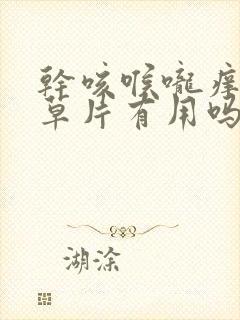 幹咳喉嚨痒
草片有用吗
湖涂